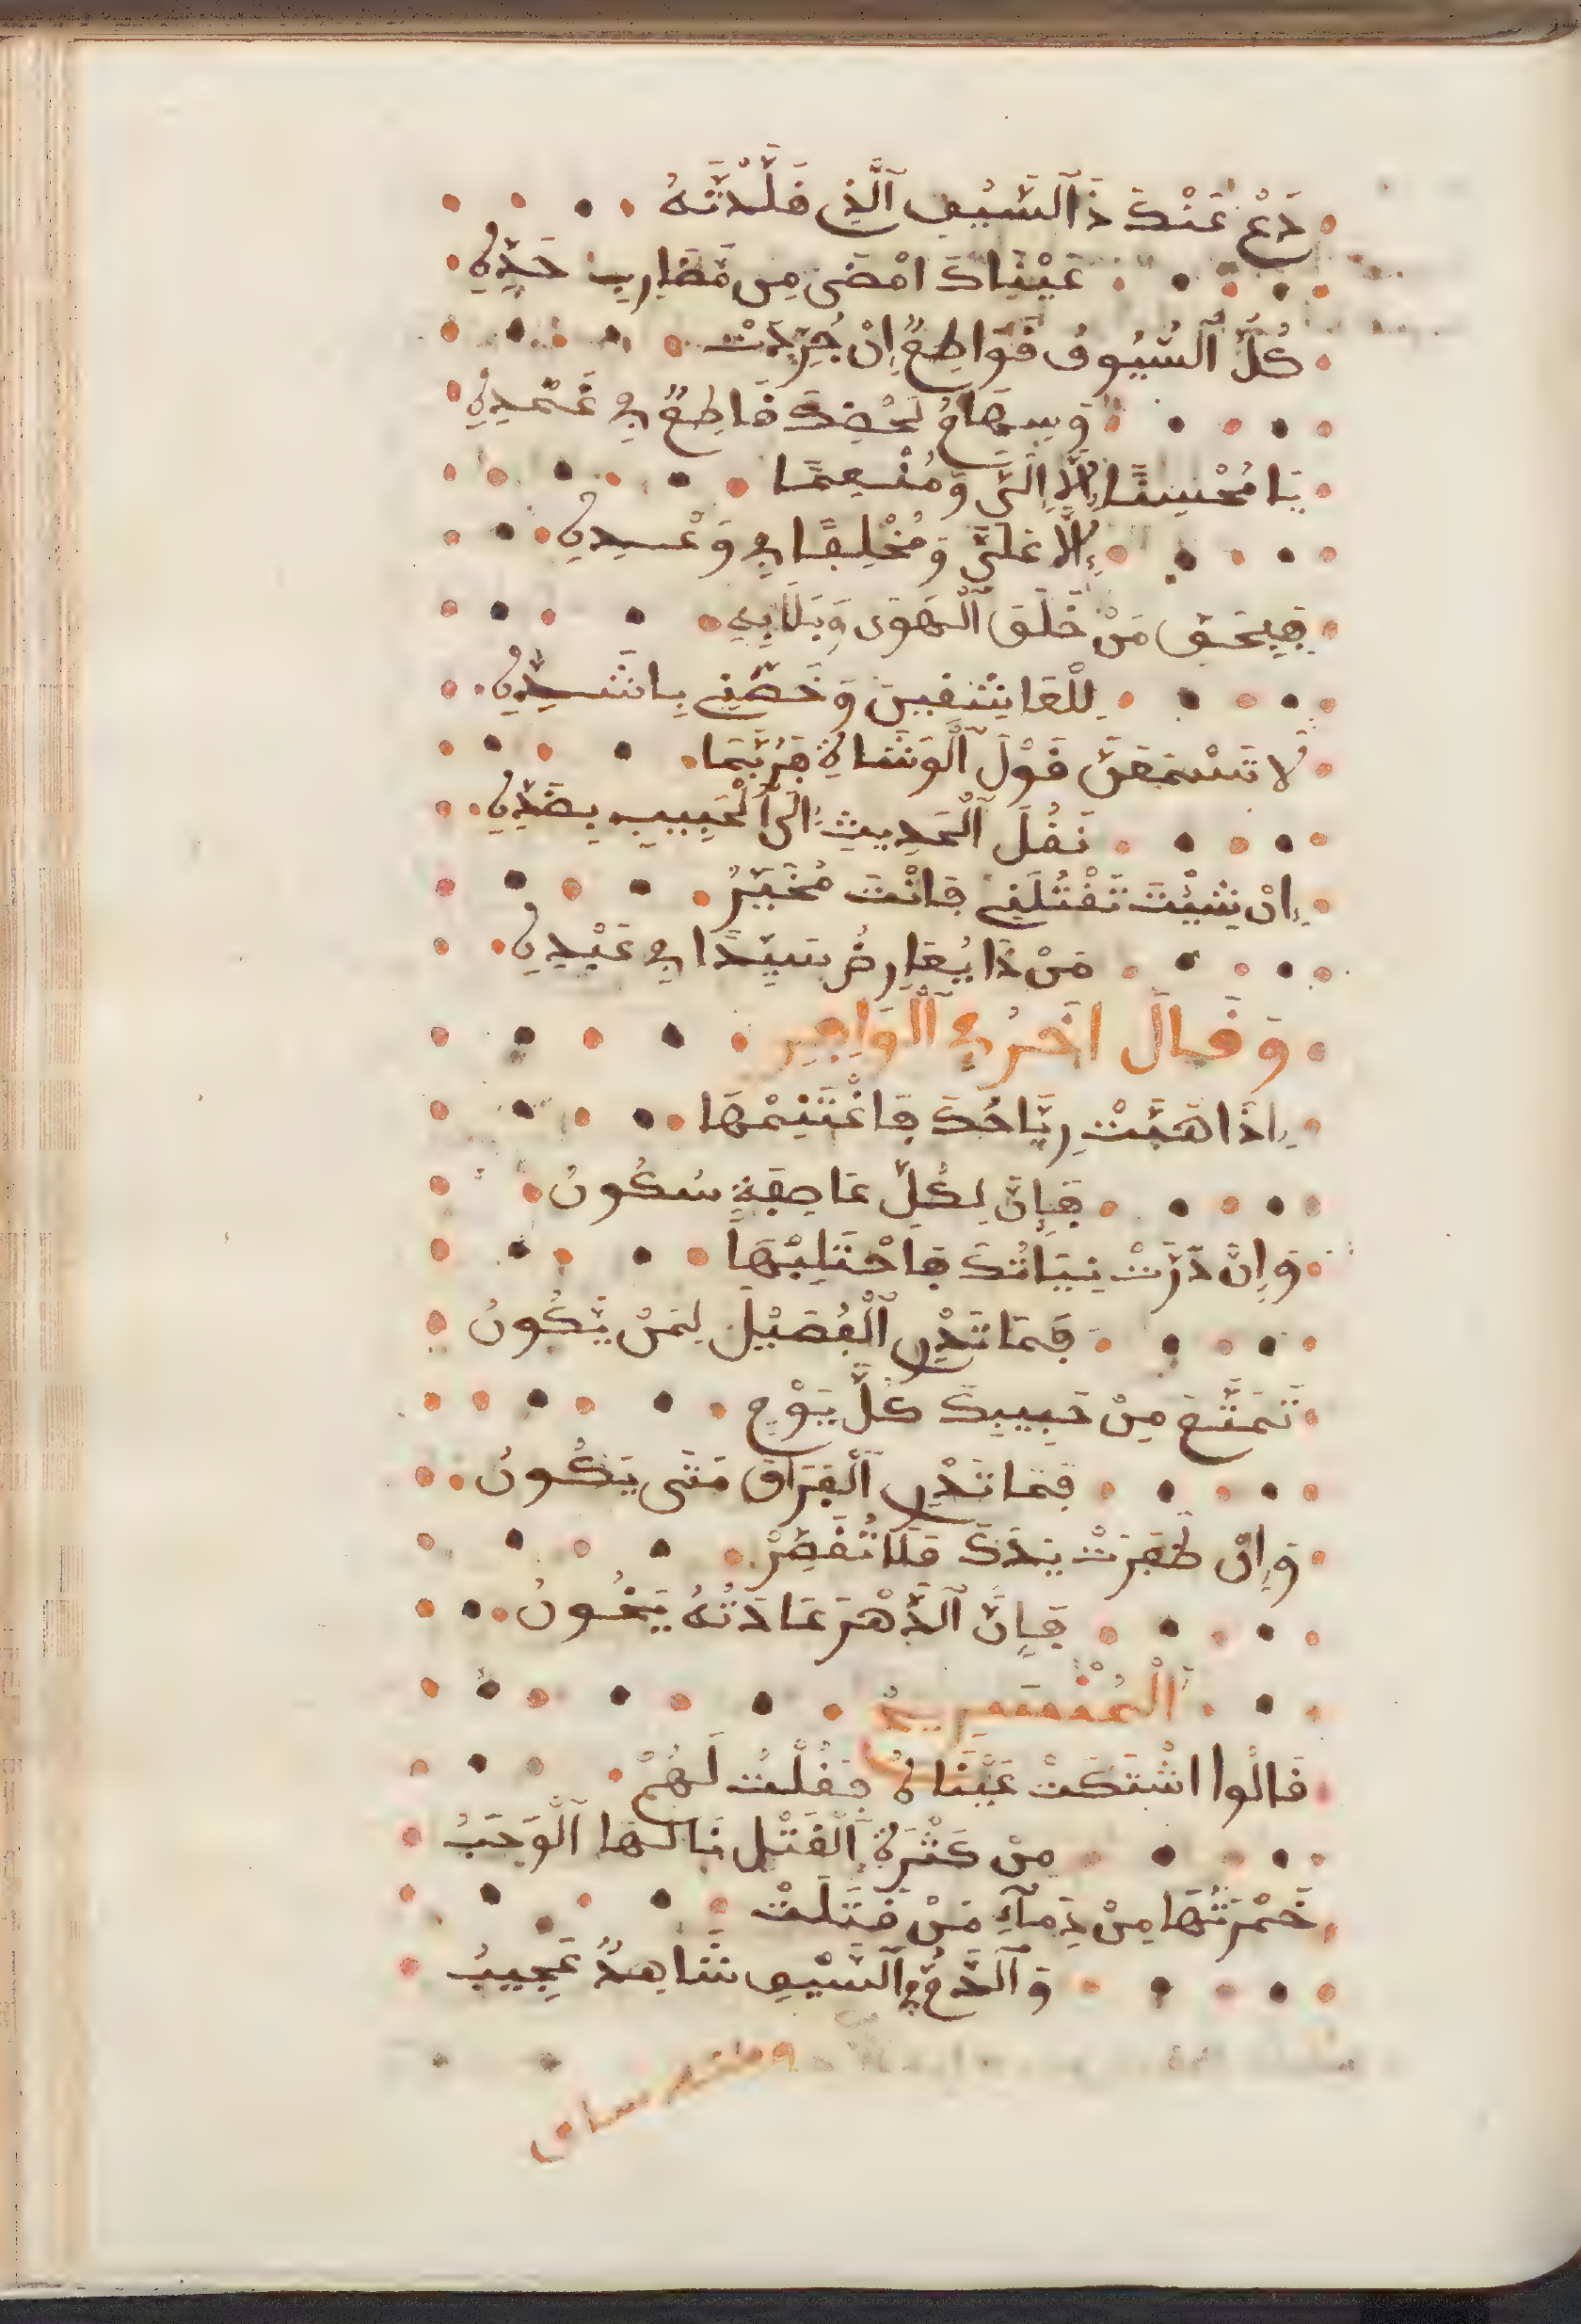 دَعْ عَنْكَ ذَا ٱلسَّيْفِ ٱلَّذِي قَلَّدْتَّهُ
عَيْنَاكَ امْضَى مِن مَّضَارِبِ حَدِّهِ
كُلُّ ٱلسُّيُوفُ قَوَاطِعٌ إِنْ جُرِّدَتْ
وَسِهَامُ لَحْضِكَ قَاطِعٌ فِي غَمْدِهِ
يَا مُحْسِنًا إِلَّا إِلَيَّ وَمُنْعِمًا
إِلَّا عَلَيَّ وَمُخْلِفًا فِي وَعْدِهِ
فَبِحَقِّ مَنْ خَلَقَ ٱلْهَوَى وَبَلَايِهِ
لِلْعَاشِقِينَ وَخَصَّنِي بِاشَدِّهِ
لَا تَسْمَعَنَّ قَوْلَ ٱلْوَشَاةِ فَرُبَّمَا
نَقُلَ ٱلْحَدِيثِ إِلَى ٱلْحَبِيبِ بِضَدِّهِ
إِنْ شِئْتَ تَقْتُلَنِي فَانْتَ مُخَيَّرٌ
مَنْ ذَا يُعَارِضُ سَيِّدًا فِي عَبْدِهِ
وَقَالَ اخَرُ فِي ٱلْوَافِرِ
إِذَا هَبَّتْ رِيَّاحُكَ فَاغْتَنِمْهَا
فَإِنَّ لِكُلِّ عَاصِفَةٍ سُكُونُ
وَإِنَّ دَرَّتْ نِيَاتُكَ فَاحْتَلِبْهَا
فَمَا تَدْرِي ٱلْفُصَيْلَ لِمَنْ يَّكُونُ
تَمَتَّعَ مِنْ حَبِيبِكَ كُلَّ يَوْمٍ
فَمَا تَدْرِي ٱلْفِرَاقَ مَتَى يَكُونُ
وَإِنْ ظَفِرَتْ يَدَكَ فَلَا تُقَصِّرْ
فَإِنَّ ٱلدَّهْرَ عَادَتُهُ يَخُونُ
ٱلْمُنْسَرِحُ
قَالُوا اشْتَكَتْ عَيْنَاهُ فَقُلْتُ لَهُمْ
مِنْ كَثْرَةِ ٱلْقَتْلِ نَالَهَا ٱلْوَجَبُ
خَمْرَتُهَا مِنْ دِمَآءِ مَنْ قَتَلَتْ
وَٱلدَّمُ فِي ٱلسَّيْفِ شَاهِدٌ عَجِيبُ